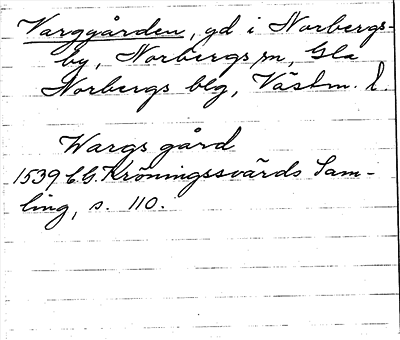 Varggården, gd i Norbergs-
by, Norbergs sn, Gla
Norbergs blg, Västm. l.
Wargs gård
1539 C.G. Kröningssvärds Sam-
ling, s. 110.